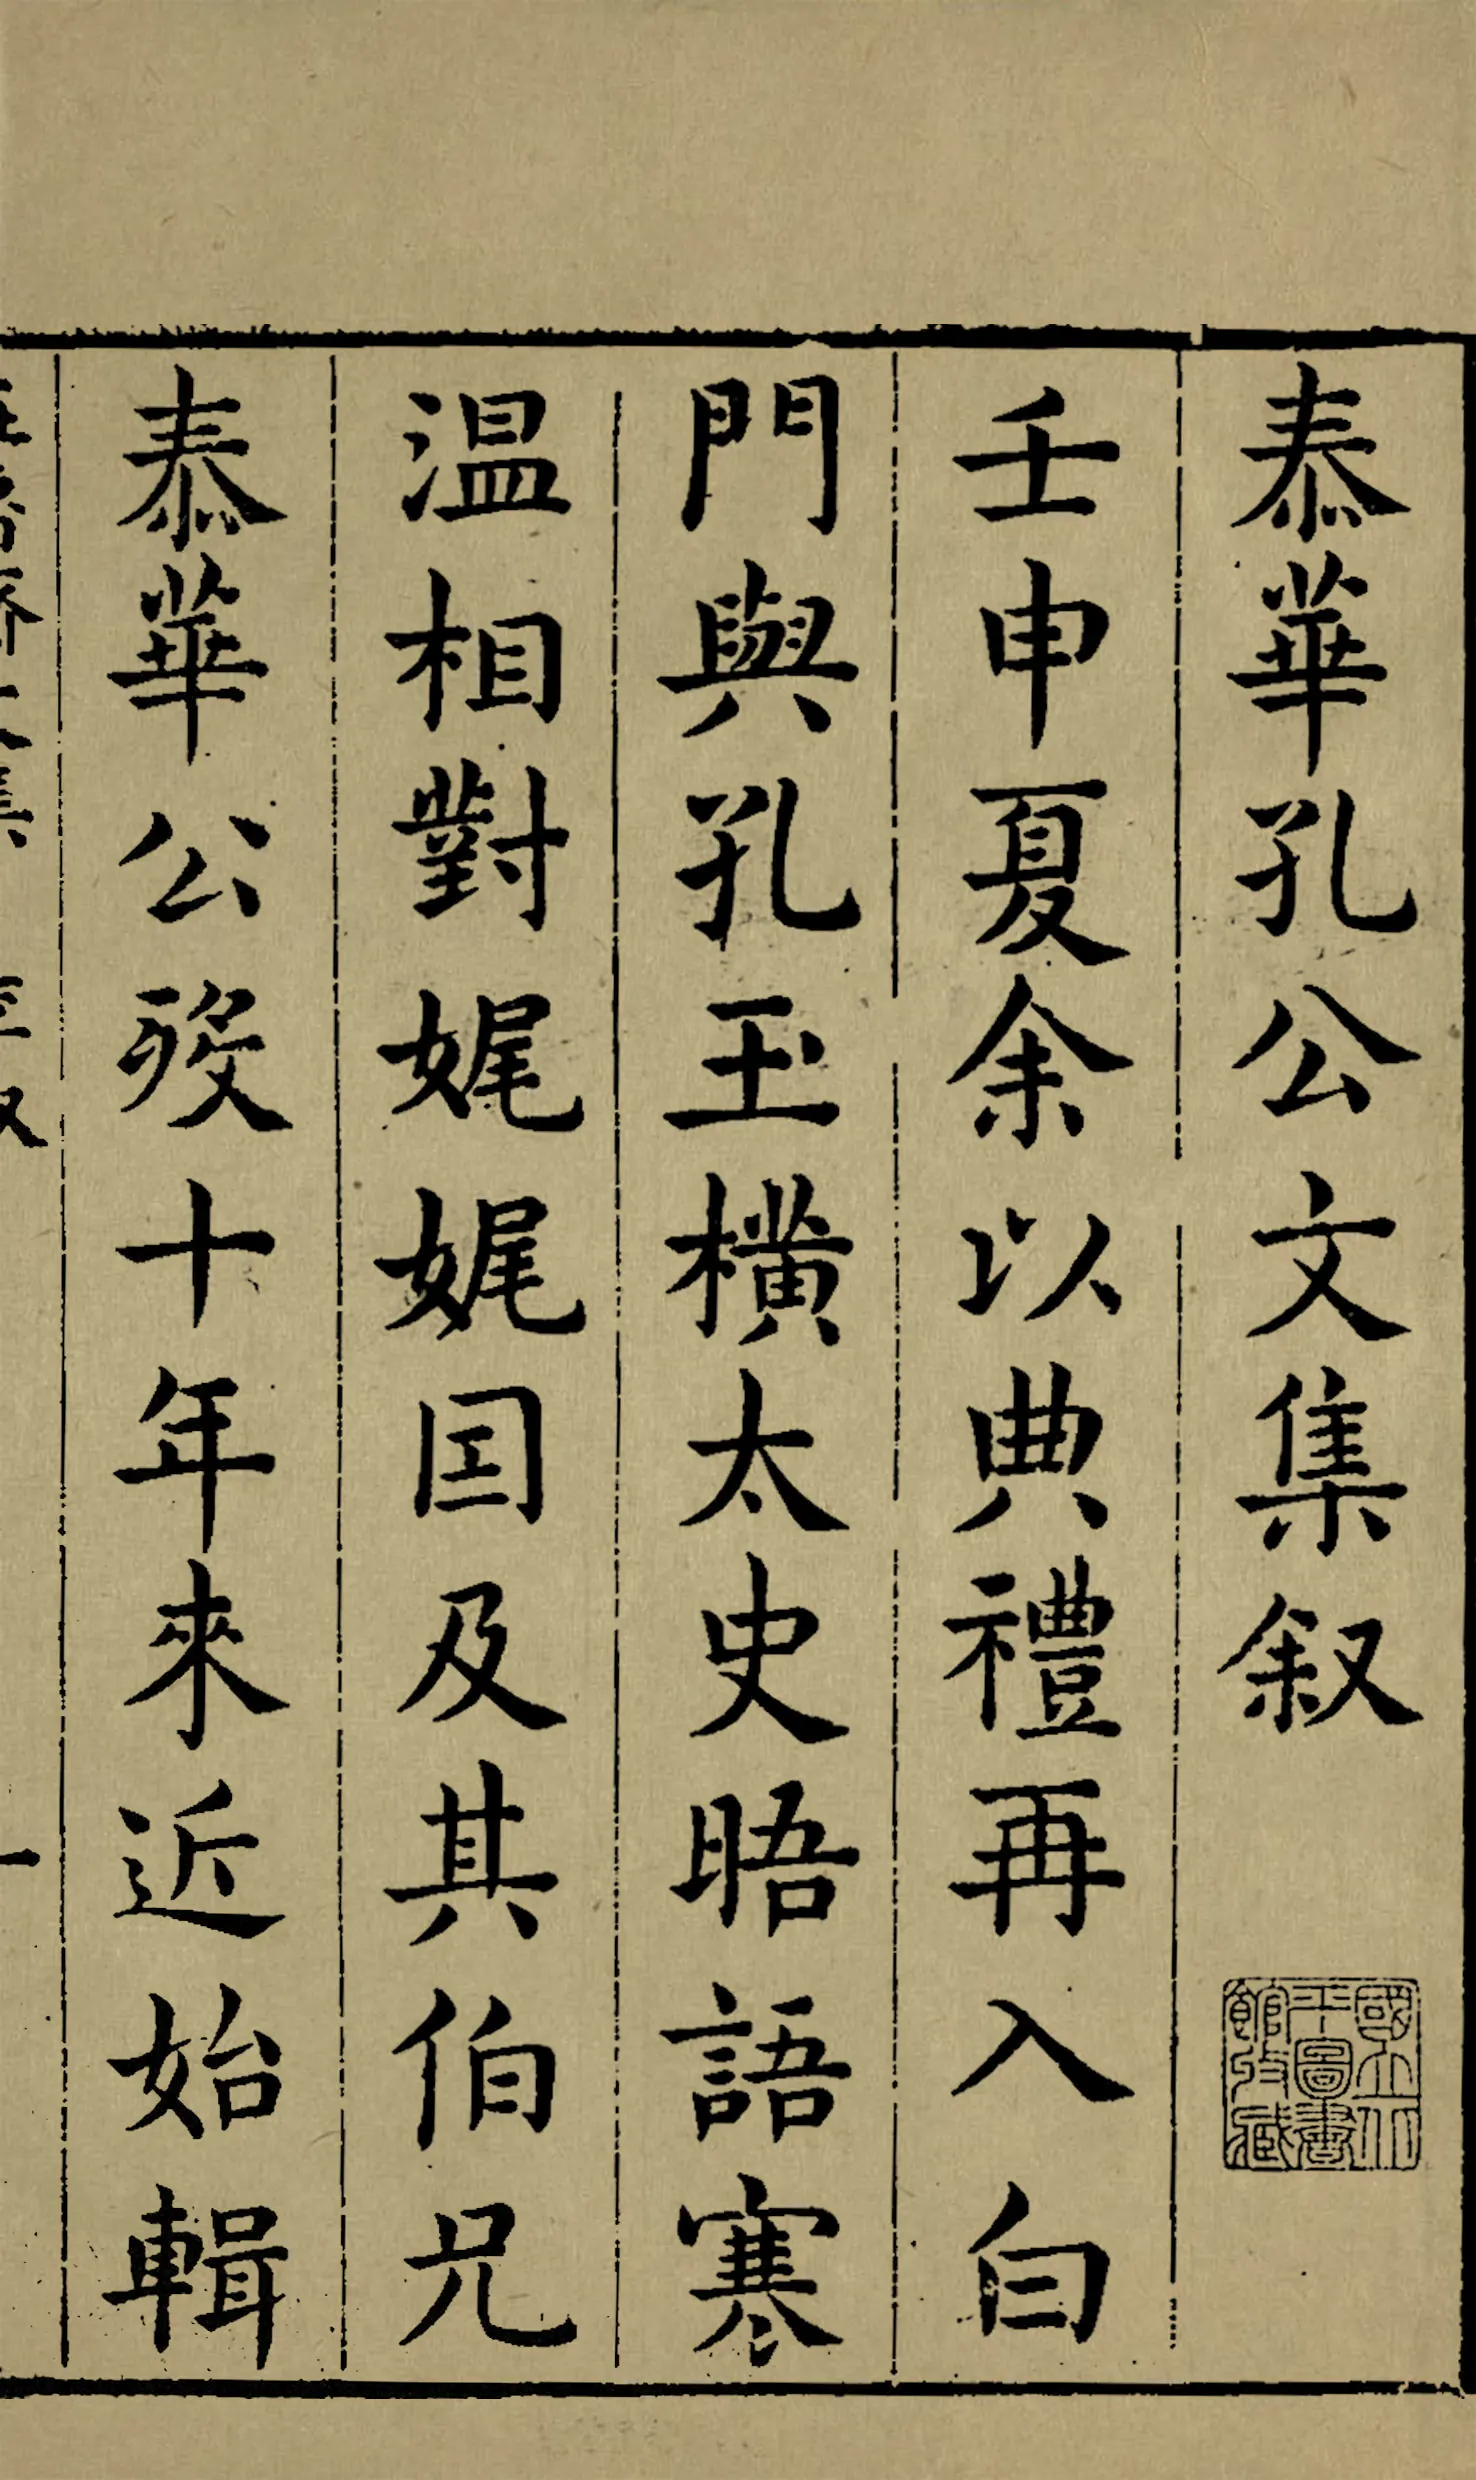 泰華孔公文集叙
國立北平圖書館收藏
壬申夏余以典禮再入白
門與孔玉橫太史晤語寒
温相對娓娓囙及其伯兄
泰華公歿十年來近始輯